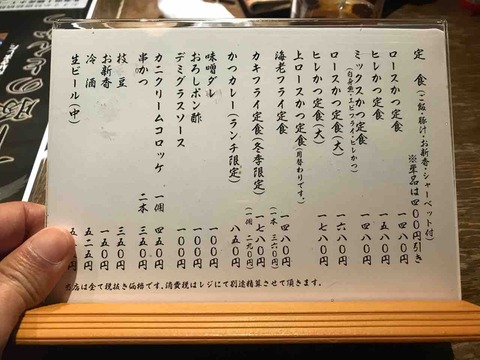 定 食(ご飯・豚汁・お新香・シャーベット付) ※単品は四〇〇円引き
ロースかつ定食
ヒレかつ定食
ミックスかつ定食
(白身魚・エビフライ・ヒレかつ)
ロースかつ定食(大)
ヒレかつ定食(大) 一七八〇円
上ロースかつ定食(月替わりです。)
海老フライ定食 一四八〇円
(一本 三六〇円)
カキフライ定食(冬季限定) 一七八〇円
(一個 二九〇円)
かつカレー(ランチ限定) 八五〇円
味噌ダレ 一〇〇円
おろしポン酢 一〇〇円
デミグラスソース 一〇〇円
カニクリームコロッケ 一個 四五〇円
串かつ 二本 三五〇円
枝豆 三五〇円
お新香 一五〇円
冷酒 五二五円
生ビール(中)
当店は全て税抜き価格です。消費税はレジにて別途精算させて頂きます。